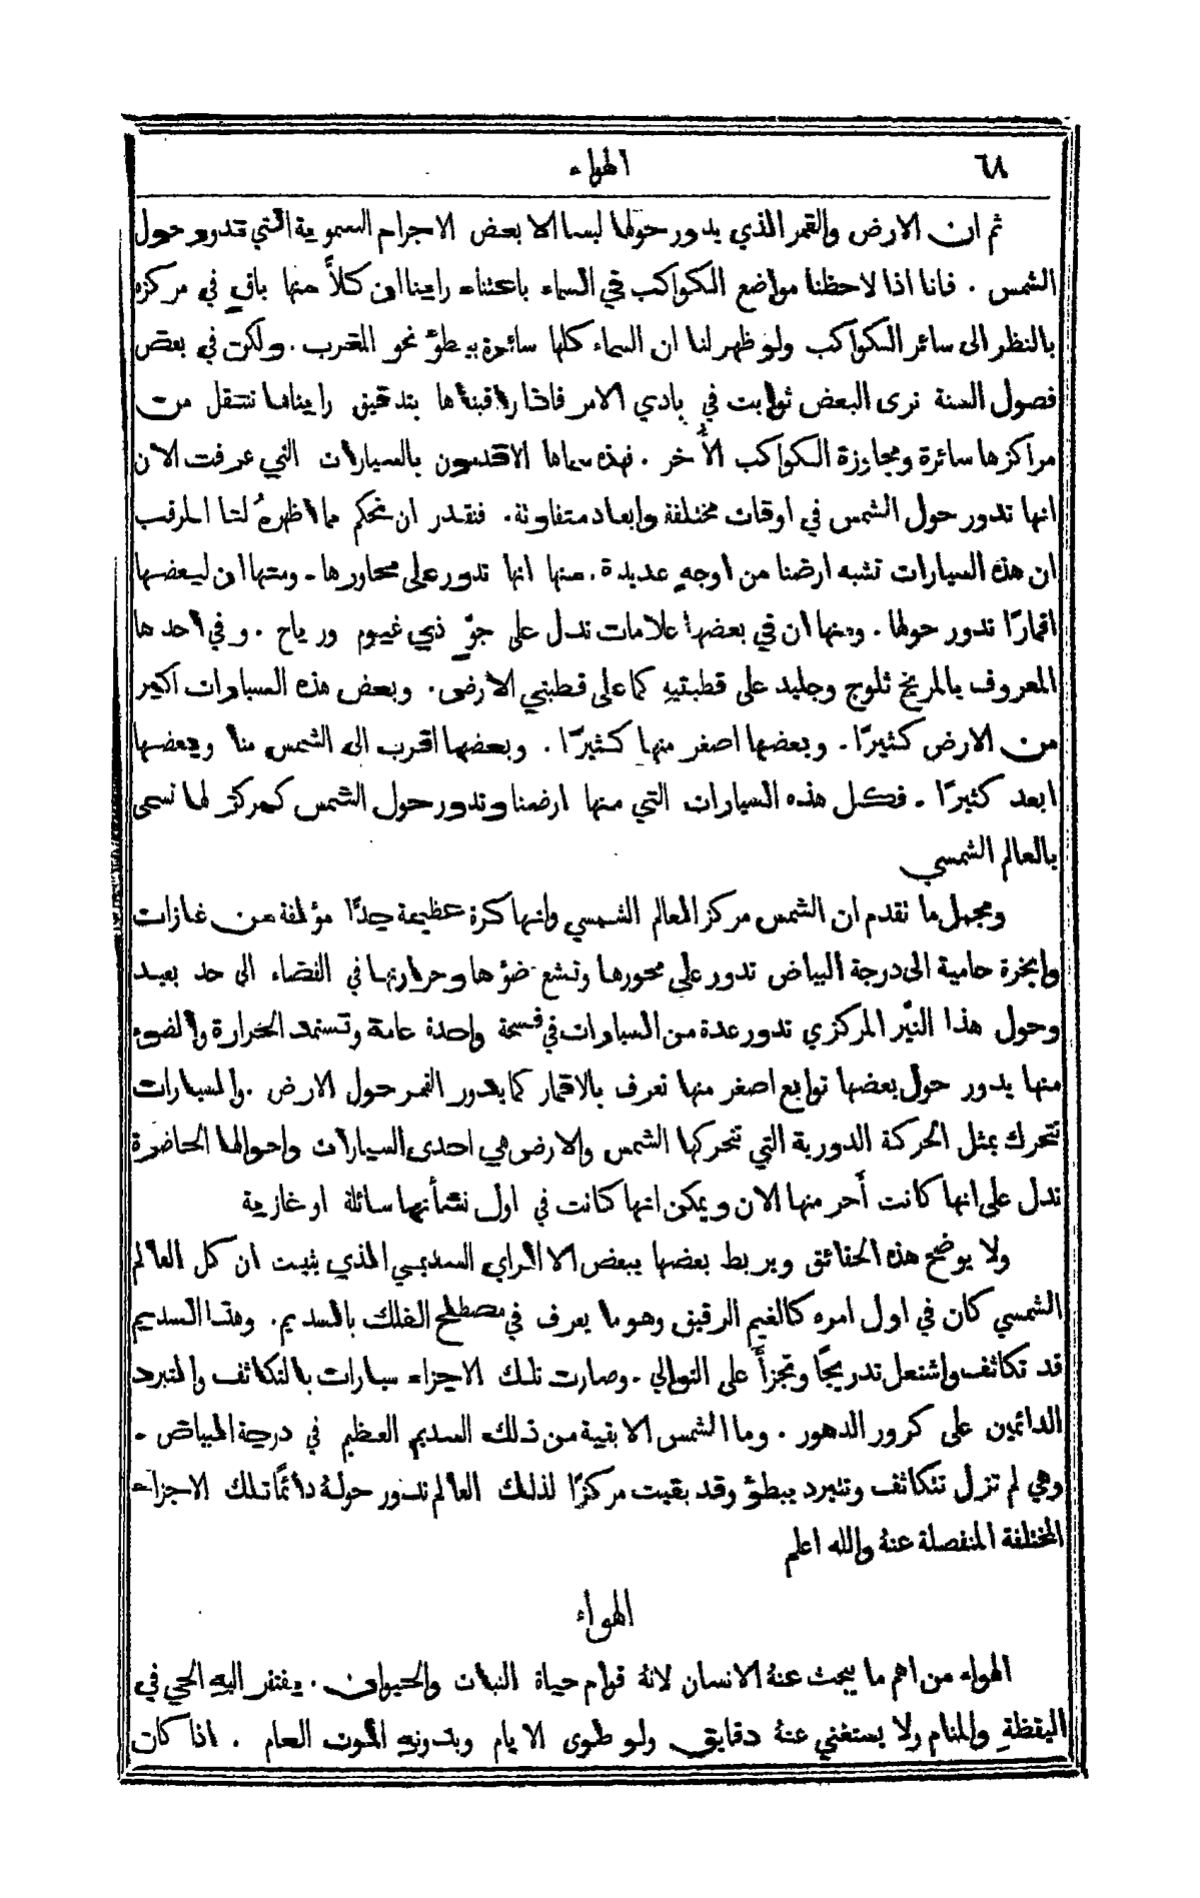 ٦٨
الهواء
ثم ان الارض والقمر الذي يدور حولها ليسا الا بعض الاجرام السموية التي تدور حول
الشمس . فانا اذا لاحظنا مواضع الكواكب في السماء باعتناء راينا ان كلاً منها باقٍ في مركزه
بالنظر الى سائر الكواكب ولو ظهر لنا ان السماء كلها سائرة ببطوء نحو المغرب . ولكن في بعض
فصول السنة نرى البعض ثوابت في بادي الامر فاذا راقبناها بتدقيق رايناها تنتقل من
مراكزها سائرة ومجاوزة الكواكب الأخر . فهذه سماها الاقدمون بالسيارات التي عرفت الان
انها تدور حول الشمس في اوقات مختلفة وابعاد متفاوتة . فنقدر ان نحكم مما اظهرهُ لنا المرقب
ان هذه السيارات تشبه ارضنا من اوجهٍ عديدة . منها انها تدور على محاورها . ومنها ان لبعضها
اقمارًا تدور حولها . ومنها ان في بعضها علامات تدل على جوٍّ ذي غيوم ورياح . وفي احدها
المعروف بالمريخ ثلوج وجليد على قطبتيهِ كما على قطبتي الارض . وبعض هذه السيارات اكبر
من الارض كثيرًا . وبعضها اصغر منها كثيرًا . وبعضها اقرب الى الشمس منا وبعضها
ابعد كثيرًا . فكل هذه السيارات التي منها ارضنا وتدور حول الشمس كمركز لها تسمى
بالعالم الشمسي
ومجمل ما تقدم ان الشمس مركز العالم الشمسي وانها كرة عظيمة جدًّا مؤلفة من غازات
وابخرة حامية الى درجة البياض تدور على محورها وتشع ضؤها وحرارتها في الفضاء الى حد بعيد
وحول هذا النيّر المركزي تدور عدة من السيارات في فسحة واحدة عامة وتستمد الحرارة والضوء
منها يدور حول بعضها توابع اصغر منها تعرف بالاقمار كما يدور القمر حول الارض . والسيارات
تتحرك بمثل الحركة الدورية التي تتحركها الشمس والارض هي احدى السيارات واحوالها الحاضرة
تدل على انها كانت أحر منها الان ويمكن انها كانت في اول نشأتها سائلة او غازية
ولا يوضح هذه الحقائق ويربط بعضها ببعض الا الراي السديمي الذي يثبت ان كل العالم
الشمسي كان في اول امره كالغيم الرقيق وهو ما يعرف في مصطلح الفلك بالسديم . وهذا السديم
قد تكاثف واشتعل تدريجًا وتجزأَ على التوالي . وصارت تلك الاجزاء سيارات بالتكاثف والتبرد
الدائمين على كرور الدهور . وما الشمس الا بقية من ذلك السديم العظيم في درجة البياض .
وهي لم تزل تتكاثف وتتبرد ببطوء وقد بقيت مركزًا لذلك العالم تدور حولهُ دائمًا تلك الاجزاء
المختلفة المنفصلة عنهُ والله اعلم
الهواء
الهواء من اهم ما يبحث عنهُ الانسان لانهُ قوام حياة النبات والحيوان . يفتقر اليهِ الحي في
اليقظةِ والمنام ولا يستغني عنهُ دقايق ولو طوى الايام وبدونهِ الموت العام . اذا كان